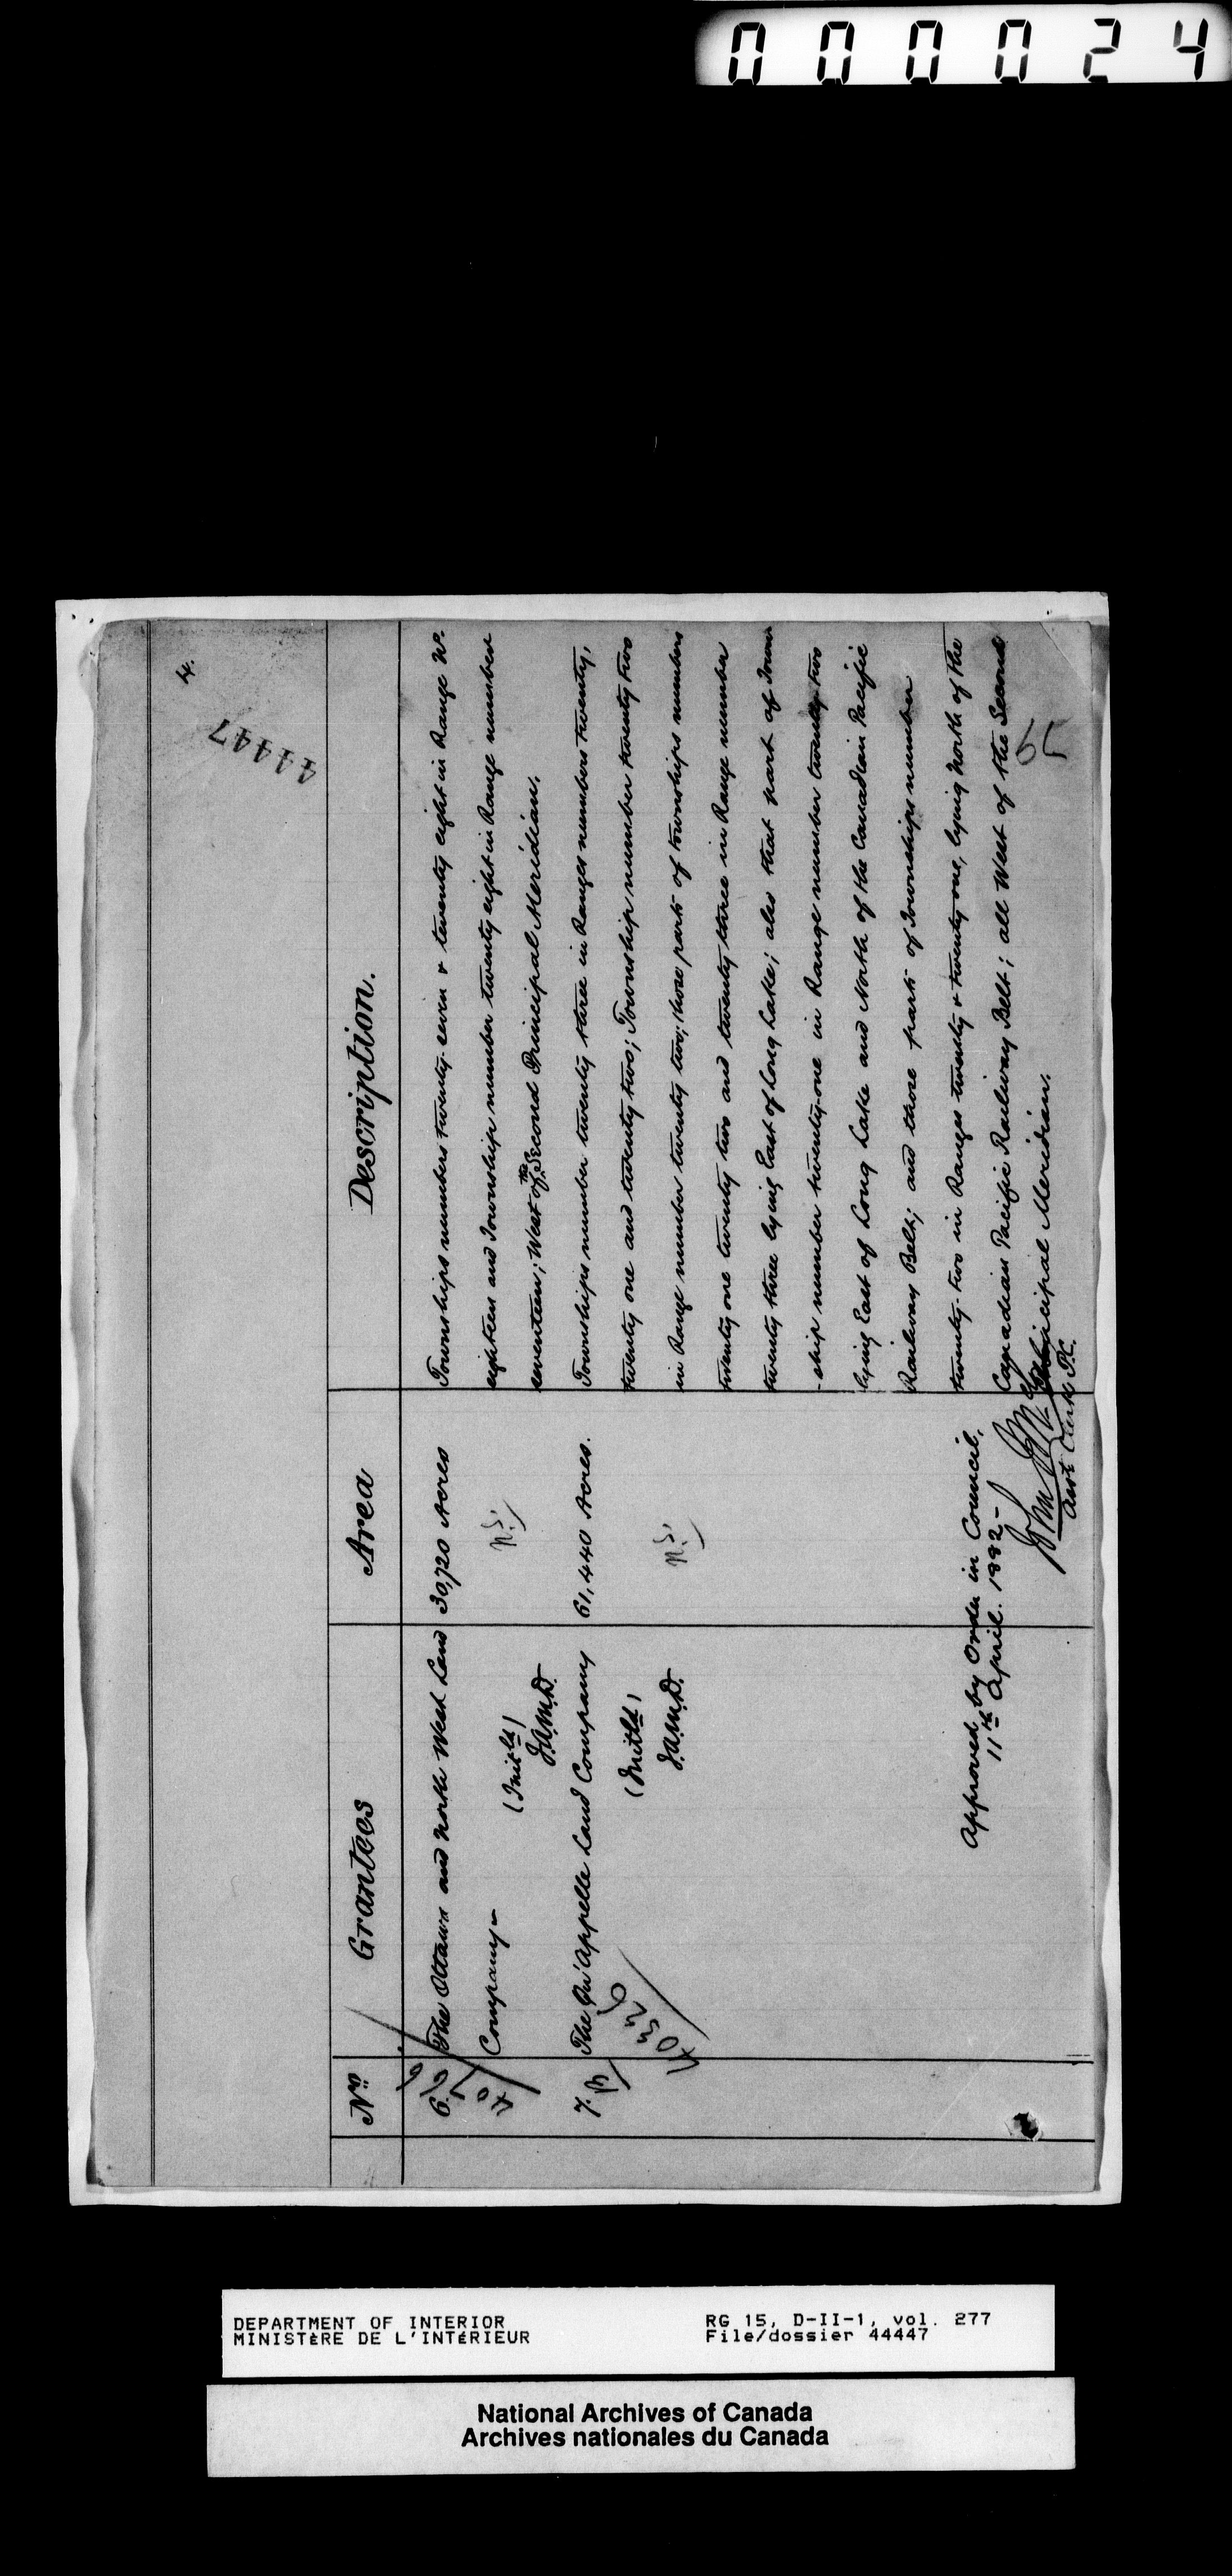 000024
4.
44447
No.
Grantees
Area
Description.
6.
The Ottawa and North West Land
Company
(Init'ld)
J.A.McD.
30,720 Acres
n.s.
Townships numbers twenty-seven & twenty eight in Range No.
eighteen and Township number twenty eight in Range number
seventeen; West of the Second Principal Meridian.
7.
The Qu'Appelle Land Company
(Init'ld)
J.A.McD.
61,440 Acres.
n.s.
Townships number twenty three in Ranges numbers twenty,
twenty one and twenty two; Township number twenty two
in Range number twenty two; those parts of townships numbers
twenty one twenty two and twenty three in Range number
twenty three lying East of Long Lake; also that part of Town
-ship number twenty-one in Range number twenty two
lying East of Long Lake and North of the Canadian Pacific
Railway Belt; and those parts of Townships number
twenty-two in Ranges twenty & twenty one, lying North of the
Canadian Pacific Railway Belt; all West of the Second
Principal Meridian.
Approved by Order in Council,
11th April. 1882-
John
Asst Clerk P.C.
DEPARTMENT OF INTERIOR
MINISTÈRE DE L'INTÉRIEUR
RG 15, D-II-1, vol. 277
File/dossier 44447
National Archives of Canada
Archives nationales du Canada